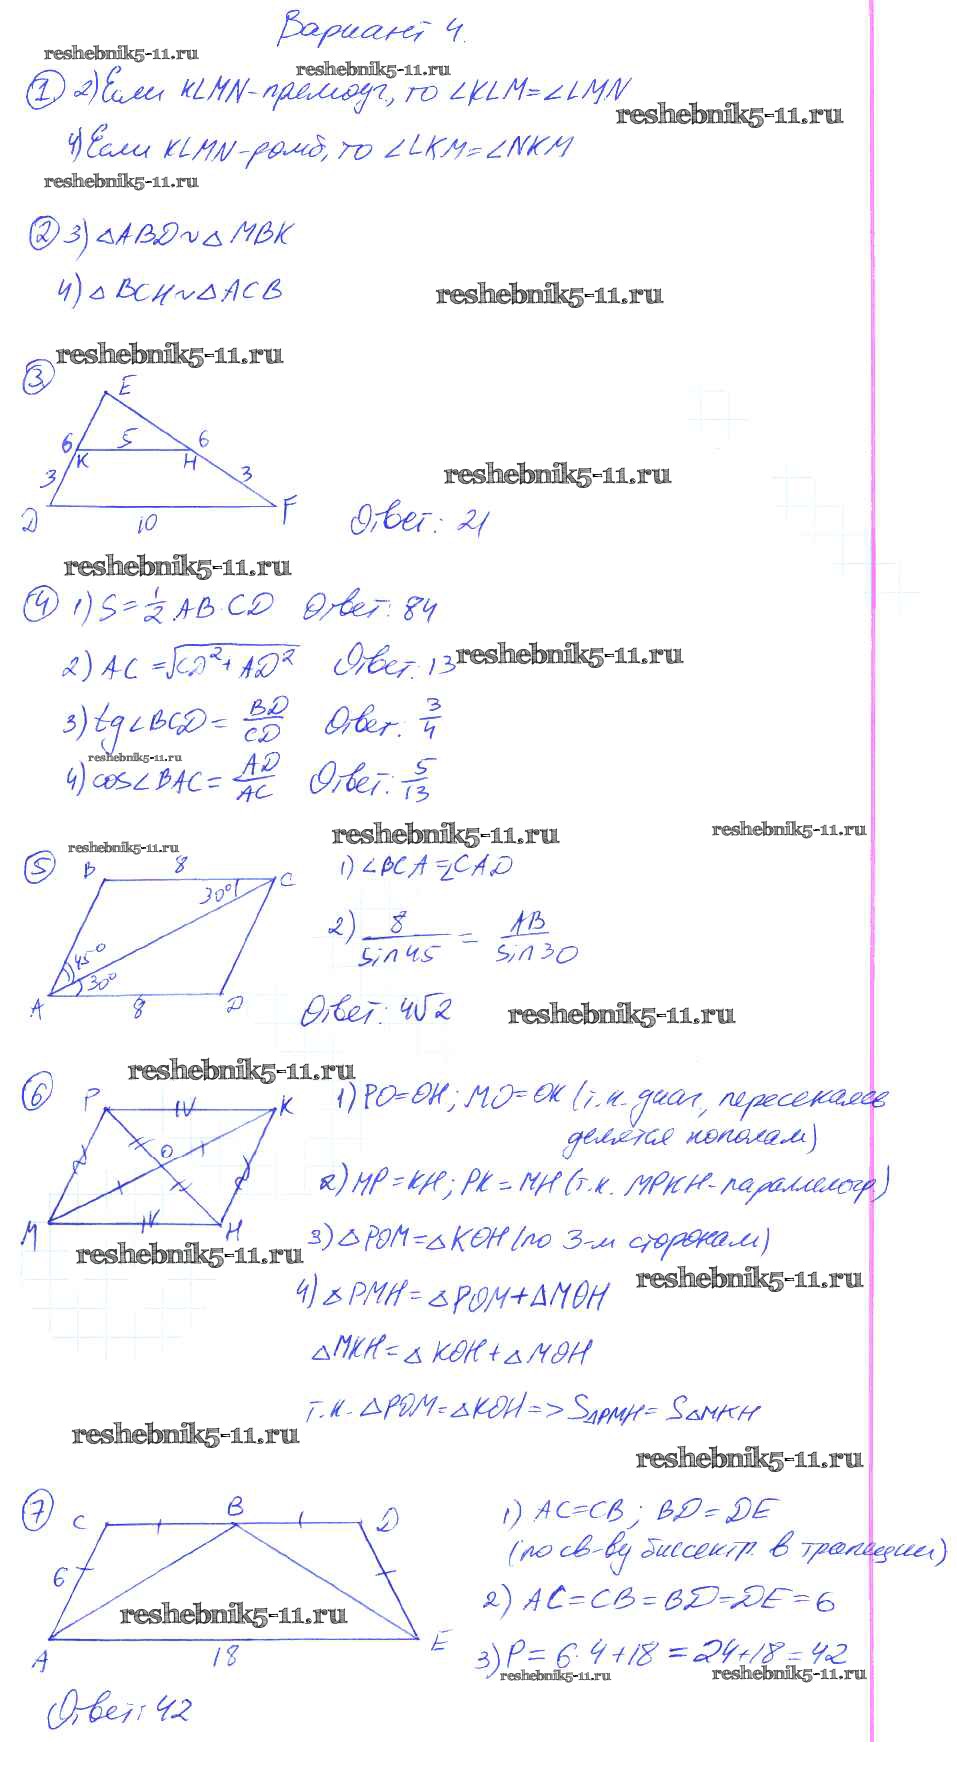 Вариант 4.
reshebnik5-11.ru
reshebnik5-11.ru
① 2) Если KLMN-прямоуг., то ∠KLM=∠LMN
reshebnik5-11.ru
4) Если KLMN-ромб, то ∠LKM=∠NKM
reshebnik5-11.ru
② 3) △ABD∾△MBK
4) △BCH∾△ACB
reshebnik5-11.ru
reshebnik5-11.ru
③
E
6 5 6
K H
3 3
reshebnik5-11.ru
D 10 F
Ответ: 21
reshebnik5-11.ru
④ 1) S=1/2 AB·CD Ответ: 84
2) AC=√CD²+AD² Ответ: 13
reshebnik5-11.ru
3) tg∠BCD=BD/CD Ответ: 3/4
reshebnik5-11.ru
4) cos∠BAC=AD/AC Ответ: 5/13
reshebnik5-11.ru
reshebnik5-11.ru
reshebnik5-11.ru
⑤ B 8 C
30°
45°
30°
A 8 D
1) ∠BCA=∠CAD
2) 8/sin45 = AB/sin30
Ответ: 4√2
reshebnik5-11.ru
reshebnik5-11.ru
⑥ P K
O
M H
1) PO=OH; MO=OK (т.к. диаг, пересекаясь
делятся пополам)
2) MP=KH; PK=MH (т.к. MPKH-параллелогр)
reshebnik5-11.ru
3) △POM=△KOH (по 3-м сторонам)
reshebnik5-11.ru
4) △PMH=△POM+△MOH
△MKH=△KOH+△MOH
т.к. △POM=△KOH=>S△PMH=S△MKH
reshebnik5-11.ru
reshebnik5-11.ru
⑦ C B D
6
A 18 E
reshebnik5-11.ru
1) AC=CB; BD=DE
(по св-ву биссектр. в трапеции)
2) AC=CB=BD=DE=6
3) P=6·4+18=24+18=42
reshebnik5-11.ru
reshebnik5-11.ru
Ответ: 42